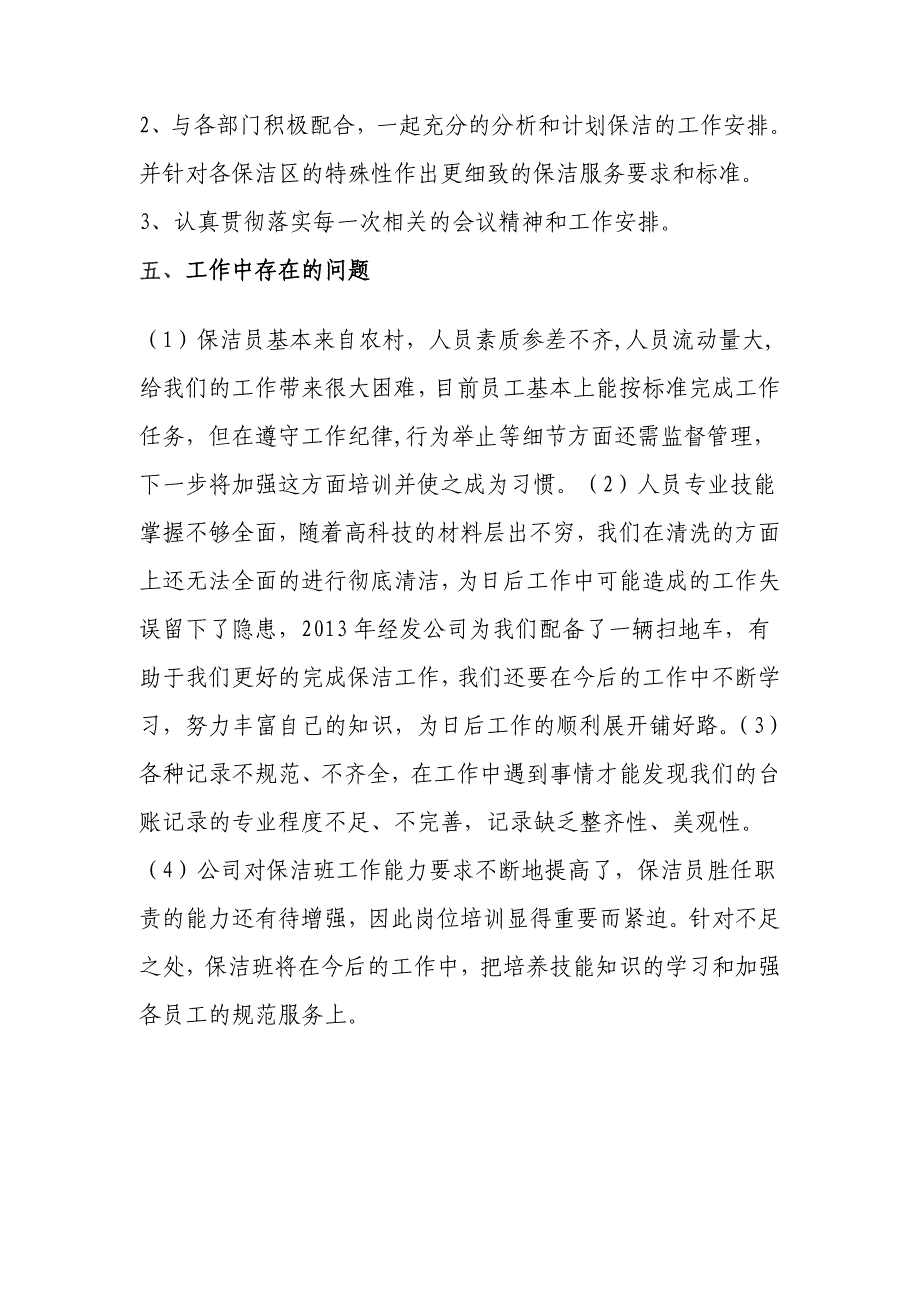 2、与各部门积极配合，一起充分的分析和计划保洁的工作安排。
并针对各保洁区的特殊性作出更细致的保洁服务要求和标准。
3、认真贯彻落实每一次相关的会议精神和工作安排。
五、工作中存在的问题
（1）保洁员基本来自农村，人员素质参差不齐,人员流动量大,
给我们的工作带来很大困难，目前员工基本上能按标准完成工作
任务，但在遵守工作纪律,行为举止等细节方面还需监督管理，
下一步将加强这方面培训并使之成为习惯。（2）人员专业技能
掌握不够全面，随着高科技的材料层出不穷，我们在清洗的方面
上还无法全面的进行彻底清洁，为日后工作中可能造成的工作失
误留下了隐患，2013 年经发公司为我们配备了一辆扫地车，有
助于我们更好的完成保洁工作，我们还要在今后的工作中不断学
习，努力丰富自己的知识，为日后工作的顺利展开铺好路。（3）
各种记录不规范、不齐全，在工作中遇到事情才能发现我们的台
账记录的专业程度不足、不完善，记录缺乏整齐性、美观性。
（4）公司对保洁班工作能力要求不断地提高了，保洁员胜任职
责的能力还有待增强，因此岗位培训显得重要而紧迫。针对不足
之处，保洁班将在今后的工作中，把培养技能知识的学习和加强
各员工的规范服务上。